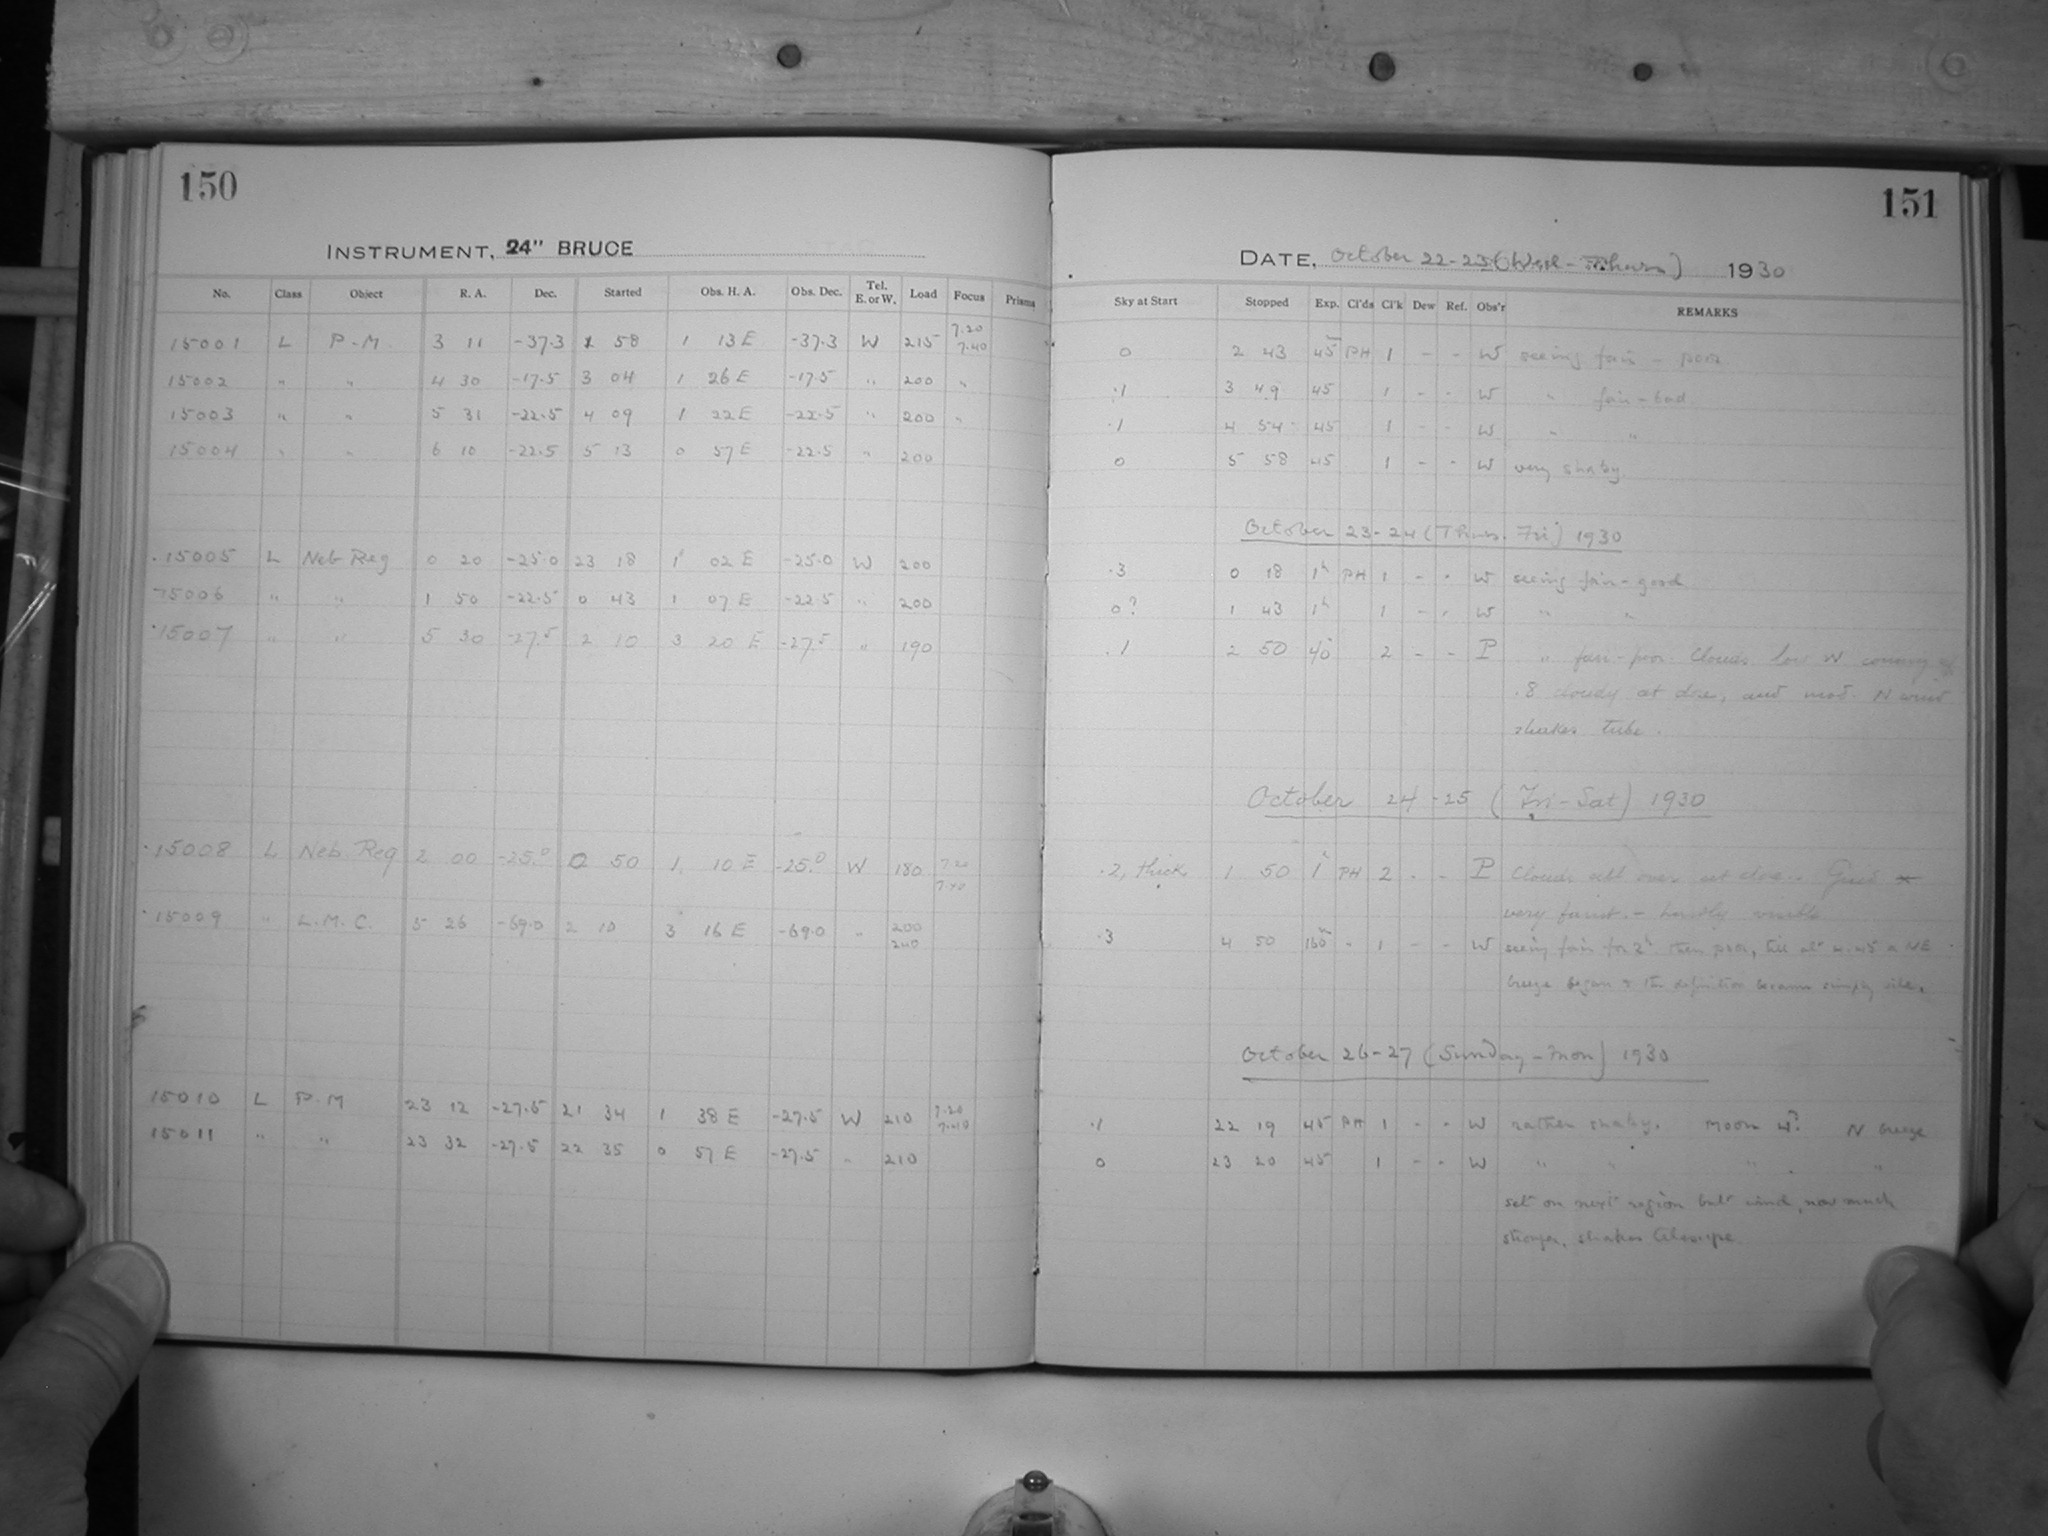 150
INSTRUMENT, 24" BRUCE
No. Class Object R. A. Dec. Started Obs. H. A. Obs. Dec. Tel. E. or W. Load Focus Prisms
15001 L P.M. 3 11 -37.3 1 58 1 13 E -37.3 W 215 7.20 7.40
15002 " " 4 30 -17.5 3 04 1 26 E -17.5 " 200 "
15003 " " 5 31 -22.5 4 09 1 22 E -22.5 " 200 "
15004 " " 6 10 -22.5 5 13 0 57 E -22.5 " 200
15005 L Neb Reg 0 20 -25.0 23 18 1 02 E -25.0 W 200
15006 " " 1 50 -22.5 0 43 1 07 E -22.5 " 200
15007 " " 5 30 -27.5 2 10 3 20 E -27.5 " 190
15008 L Neb. Reg 2 00 -25.0 0 50 1 10 E -25.0 W 180 7.20 7.40
15009 " L.M.C. 5 26 -69.0 2 10 3 16 E -69.0 " 200 240
15010 L P.M 23 12 -27.5 21 34 1 38 E -27.5 W 210 7.20 7.40
15011 " " 23 32 -27.5 22 35 0 57 E -27.5 " 210
151
DATE, October 22-23 (Wed-Thurs) 1930
Sky at Start Stopped Exp. Cl'ds Cl'k Dew Ref. Obs'r REMARKS
0 2 43 45m PH 1 - - W seeing fair - poor
.1 3 49 45 1 - - W " fair-bad
.1 4 54 45 1 - - W " "
0 5 58 45 1 - - W very shaky.
October 23-24 (Thurs. Fri) 1930
.3 0 18 1h PH 1 - - W seeing fair-good
0? 1 43 1h 1 - - W " "
.1 2 50 40 2 - - P " fair-poor. Clouds low W coming up
.8 cloudy at close, and mod. N wind
shakes tube.
October 24-25 (Fri-Sat) 1930
.2, thick 1 50 1h PH 2 - - P Clouds all over at close. Guide *
very faint. - hardly visible
.3 4 50 160m - 1 - - W seeing fair for 2h then poor, till at 4.45 a NE
breeze began & the definition became simply vile.
October 26-27 (Sunday-Mon) 1930
.1 22 19 45 PH 1 - - W rather shaky. Moon N breeze
0 23 20 45 1 - - W " " " "
set on next region but wind, now much
stronger, shakes telescope